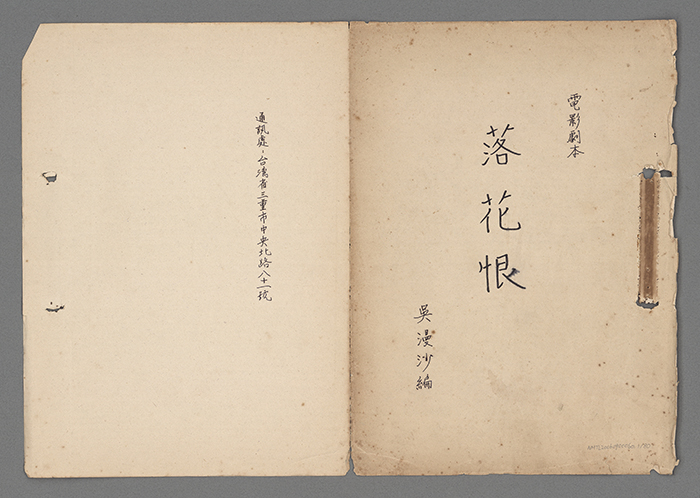 電影劇本
落花恨
吳漫沙編
通訊處：台灣省三重市中央北路八十一號